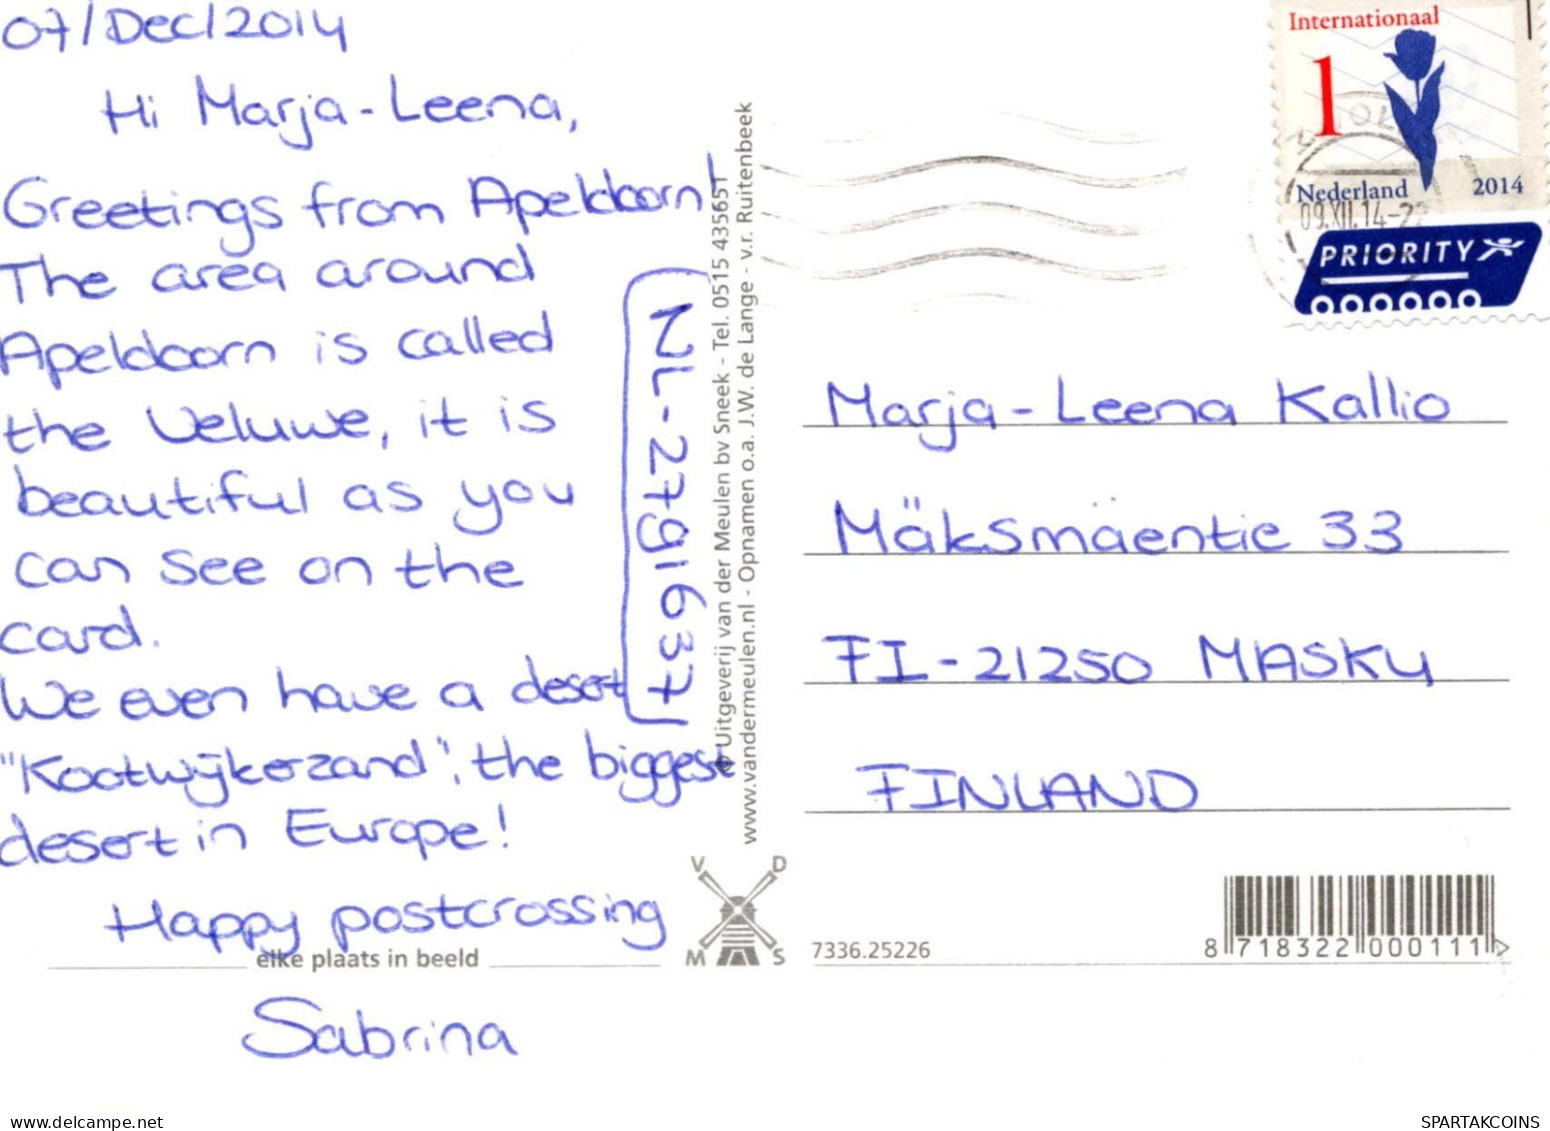 07/Dec/2014
Hi Marja-Leena,
Greetings from Apeldoorn!
The area around
Apeldoorn is called
the Veluwe, it is
beautiful as you
can see on the
card.
We even have a desert
"Kootwijkerzand", the biggest
desert in Europe!
Happy postcrossing
Sabrina
NL-2791637
© Uitgeverij van der Meulen bv Sneek - Tel. 0515 435651
www.vandermeulen.nl - Opnamen o.a. J.W. de Lange - v.r. Ruitenbeek
elke plaats in beeld
V D
M S
Internationaal
1
Nederland 2014
09.XII.14-22
PRIORITY
Marja-Leena Kallio
Mäksmäentie 33
FI-21250 MASKU
FINLAND
7336.25226
8 718322 000111 >
www.delcampe.net
SPARTAKCOINS